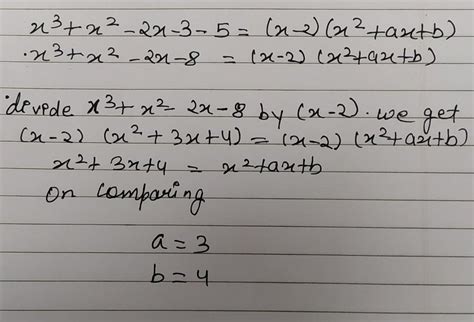 x³+x²-2x-3-5 = (x-2)(x²+ax+b)
·x³+x²-2x-8 = (x-2)(x²+ax+b)
devede x³+x²-2x-8 by (x-2). we get
(x-2) (x²+3x+4) = (x-2)(x²+ax+b)
x²+3x+4 = x²+ax+b
On comparing
a = 3
b = 4